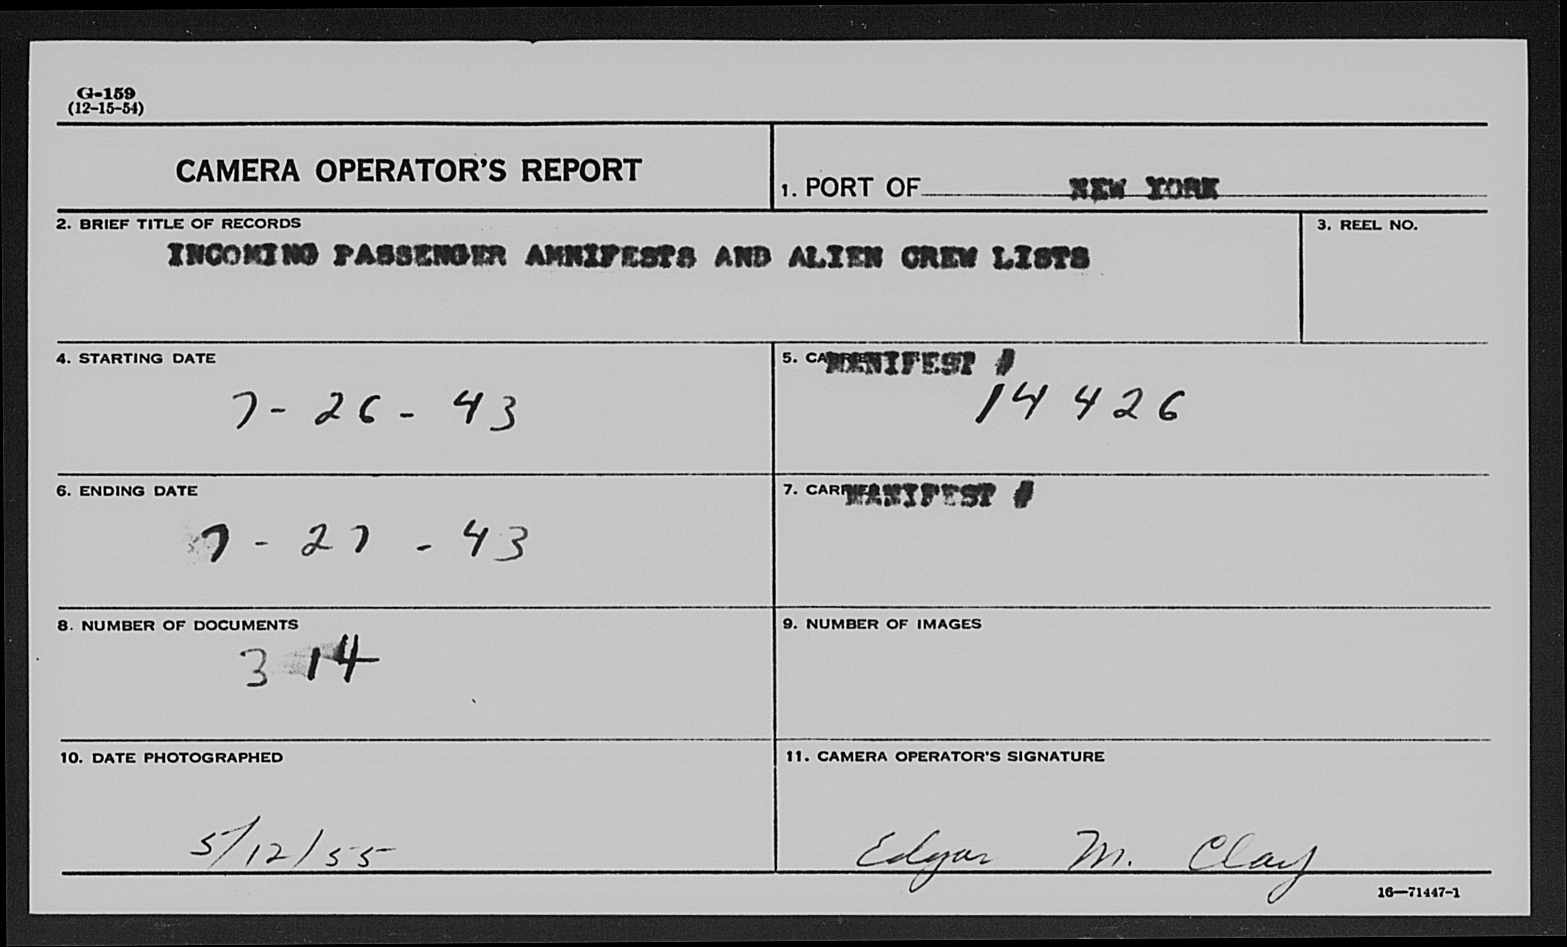 G-159
(12-15-54)
CAMERA OPERATOR'S REPORT
1. PORT OF NEW YORK
2. BRIEF TITLE OF RECORDS
INCOMING PASSENGER AMNIFESTS AND ALIEN CREW LISTS
3. REEL NO.
4. STARTING DATE
7-26-43
5. MANIFEST #
14426
6. ENDING DATE
7-27-43
7. MANIFEST #
8. NUMBER OF DOCUMENTS
314
9. NUMBER OF IMAGES
10. DATE PHOTOGRAPHED
5/12/55
11. CAMERA OPERATOR'S SIGNATURE
Edgar M. Clay
16—71447-1